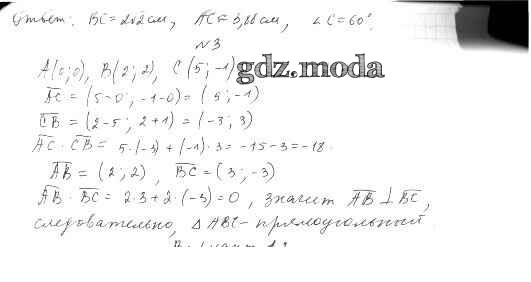 Ответ: BC = 2√2 см, AC ≈ 3,86 см, ∠C = 60°.
№3
A(0; 0), B(2; 2), C(5; -1) gdz.moda
AC = (5-0; -1-0) = (5; -1)
CB = (2-5; 2+1) = (-3; 3)
AC · CB = 5·(-3) + (-1)·3 = -15-3 = -18.
AB = (2; 2), BC = (3; -3)
AB · BC = 2·3+2·(-3) = 0, значит AB ⊥ BC,
следовательно, △ABC - прямоугольный.